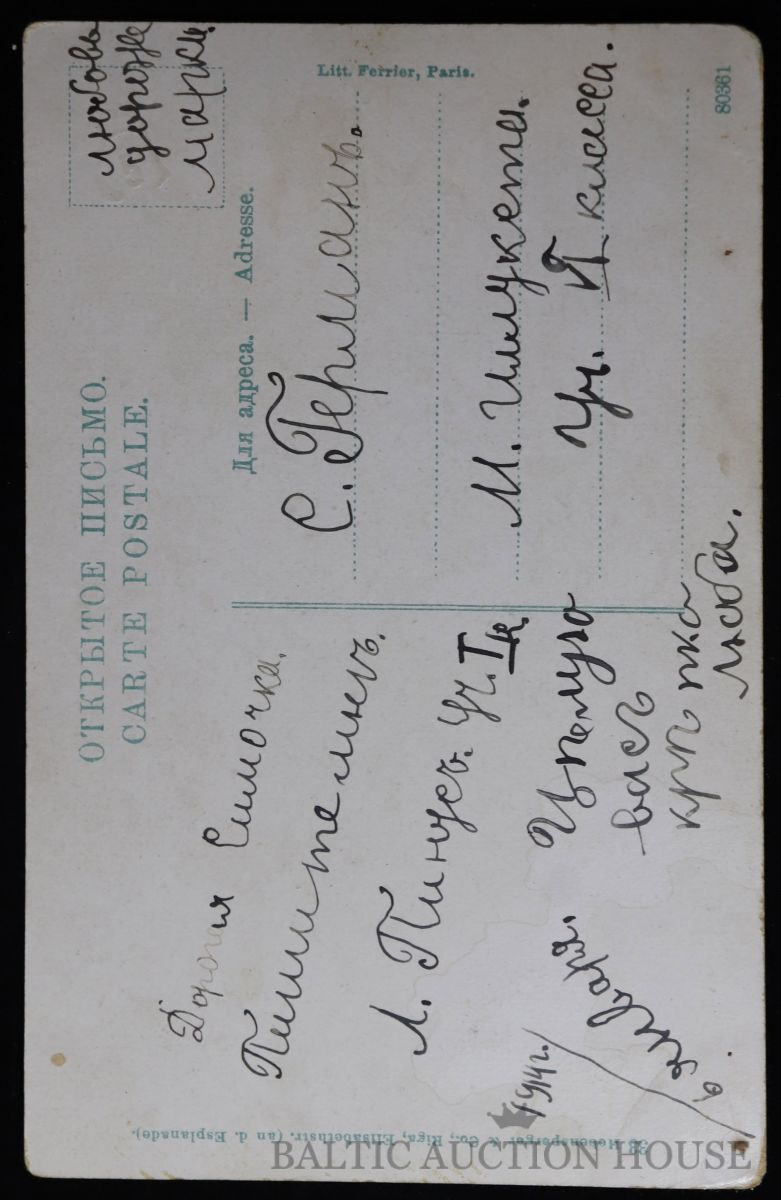 ОТКРЫТОЕ ПИСЬМО.
CARTE POSTALE.
любовь
дороже
марки.
Litt. Ferrier, Paris.
Для адреса. — Adresse.
С. Германъ.
М. Шмукета.
Уч. VI класса.
80361
Дорогая Симочка.
Пишите мнѣ.
Л. Пинусъ. Уч. I к.
Цѣлую
васъ
крѣпко
Люба.
1914г.
6 января.
& Co., Riga, Elisabethstr. (an d. Esplanade).
BALTIC AUCTION HOUSE